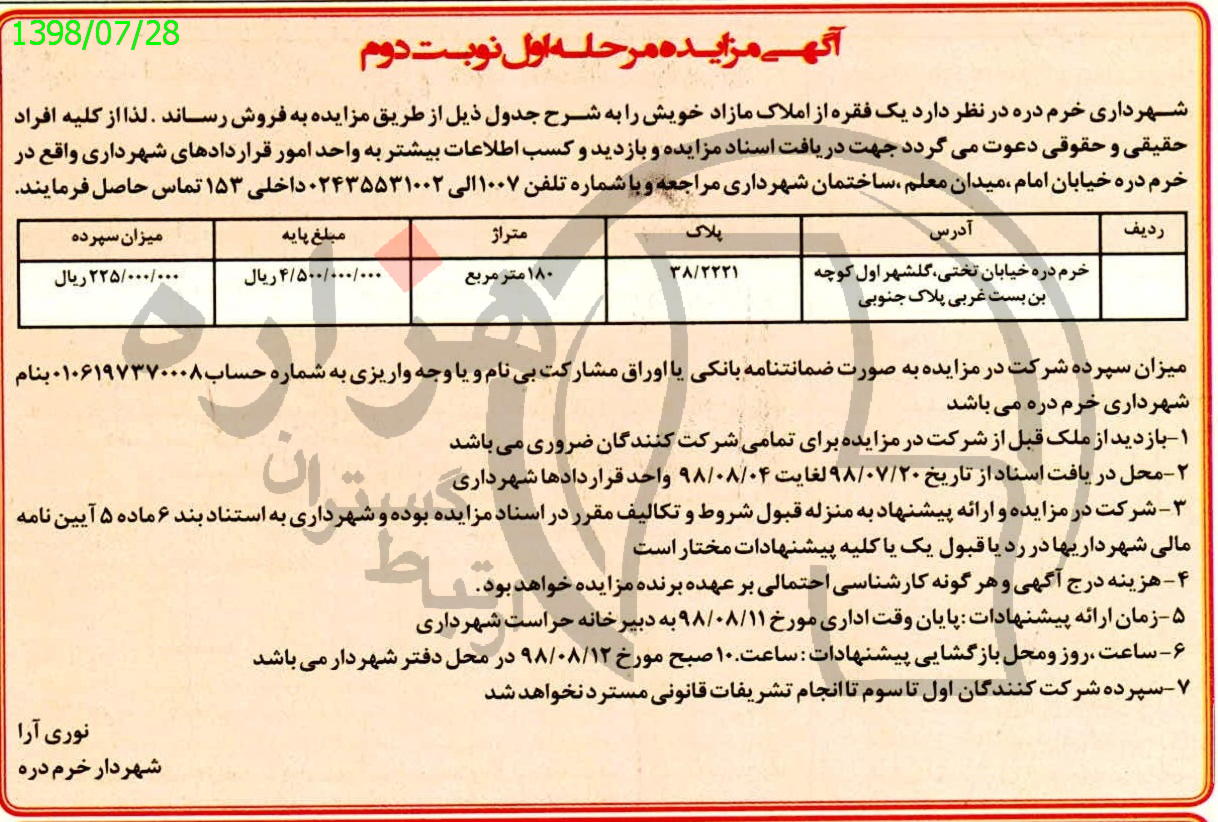 1398/07/28
آگهی مزایده مرحله اول نوبت دوم
شهرداری خرم دره در نظر دارد یک فقره از املاک مازاد خویش را به شرح جدول ذیل از طریق مزایده به فروش رساند . لذا از کلیه افراد
حقیقی و حقوقی دعوت می گردد جهت دریافت اسناد مزایده و بازدید و کسب اطلاعات بیشتر به واحد امور قراردادهای شهرداری واقع در
خرم دره خیابان امام ،میدان معلم ،ساختمان شهرداری مراجعه و با شماره تلفن ۱۰۰۷ الی ۰۲۴۳۵۵۳۱۰۰۲ داخلی ۱۵۳ تماس حاصل فرمایند.
ردیف آدرس پلاک متراژ مبلغ پایه میزان سپرده
خرم دره خیابان تختی،گلشهر اول کوچه ۳۸/۲۲۲۱ ۱۸۰ متر مربع ۴/۵۰۰/۰۰۰/۰۰۰ ریال ۲۲۵/۰۰۰/۰۰۰ ریال
بن بست غربی پلاک جنوبی
میزان سپرده شرکت در مزایده به صورت ضمانتنامه بانکی یا اوراق مشارکت بی نام و یا وجه واریزی به شماره حساب ۰۱۰۶۱۹۷۳۷۰۰۰۸ بنام
شهرداری خرم دره می باشد
۱-بازدید از ملک قبل از شرکت در مزایده برای تمامی شرکت کنندگان ضروری می باشد
۲-محل دریافت اسناد از تاریخ ۹۸/۰۷/۲۰ لغایت ۹۸/۰۸/۰۴ واحد قراردادها شهرداری
۳-شرکت در مزایده و ارائه پیشنهاد به منزله قبول شروط و تکالیف مقرر در اسناد مزایده بوده و شهرداری به استناد بند ۶ ماده ۵ آیین نامه
مالی شهرداریها در رد یا قبول یک یا کلیه پیشنهادات مختار است
۴-هزینه درج آگهی و هر گونه کارشناسی احتمالی بر عهده برنده مزایده خواهد بود.
۵-زمان ارائه پیشنهادات :پایان وقت اداری مورخ ۹۸/۰۸/۱۱ به دبیرخانه حراست شهرداری
۶-ساعت ،روز ومحل بازگشایی پیشنهادات :ساعت.۱۰ صبح مورخ ۹۸/۰۸/۱۲ در محل دفتر شهردار می باشد
۷-سپرده شرکت کنندگان اول تا سوم تا انجام تشریفات قانونی مسترد نخواهد شد
نوری آرا
شهردار خرم دره
هزاره
گستران
ارتباط